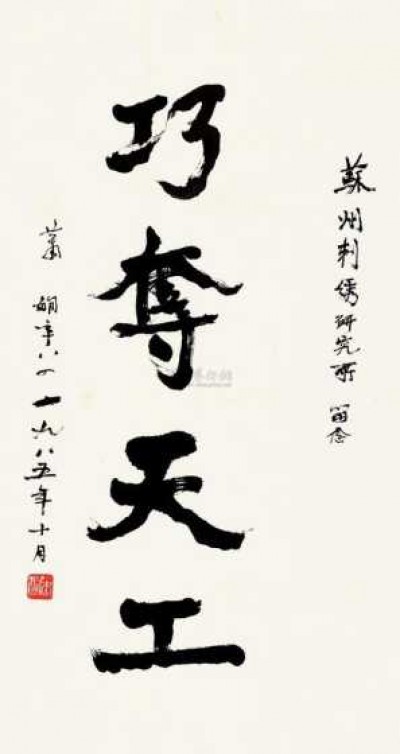 蘇州刺绣研究所 留念
巧奪天工
萧娴年八四 一九八五年十月